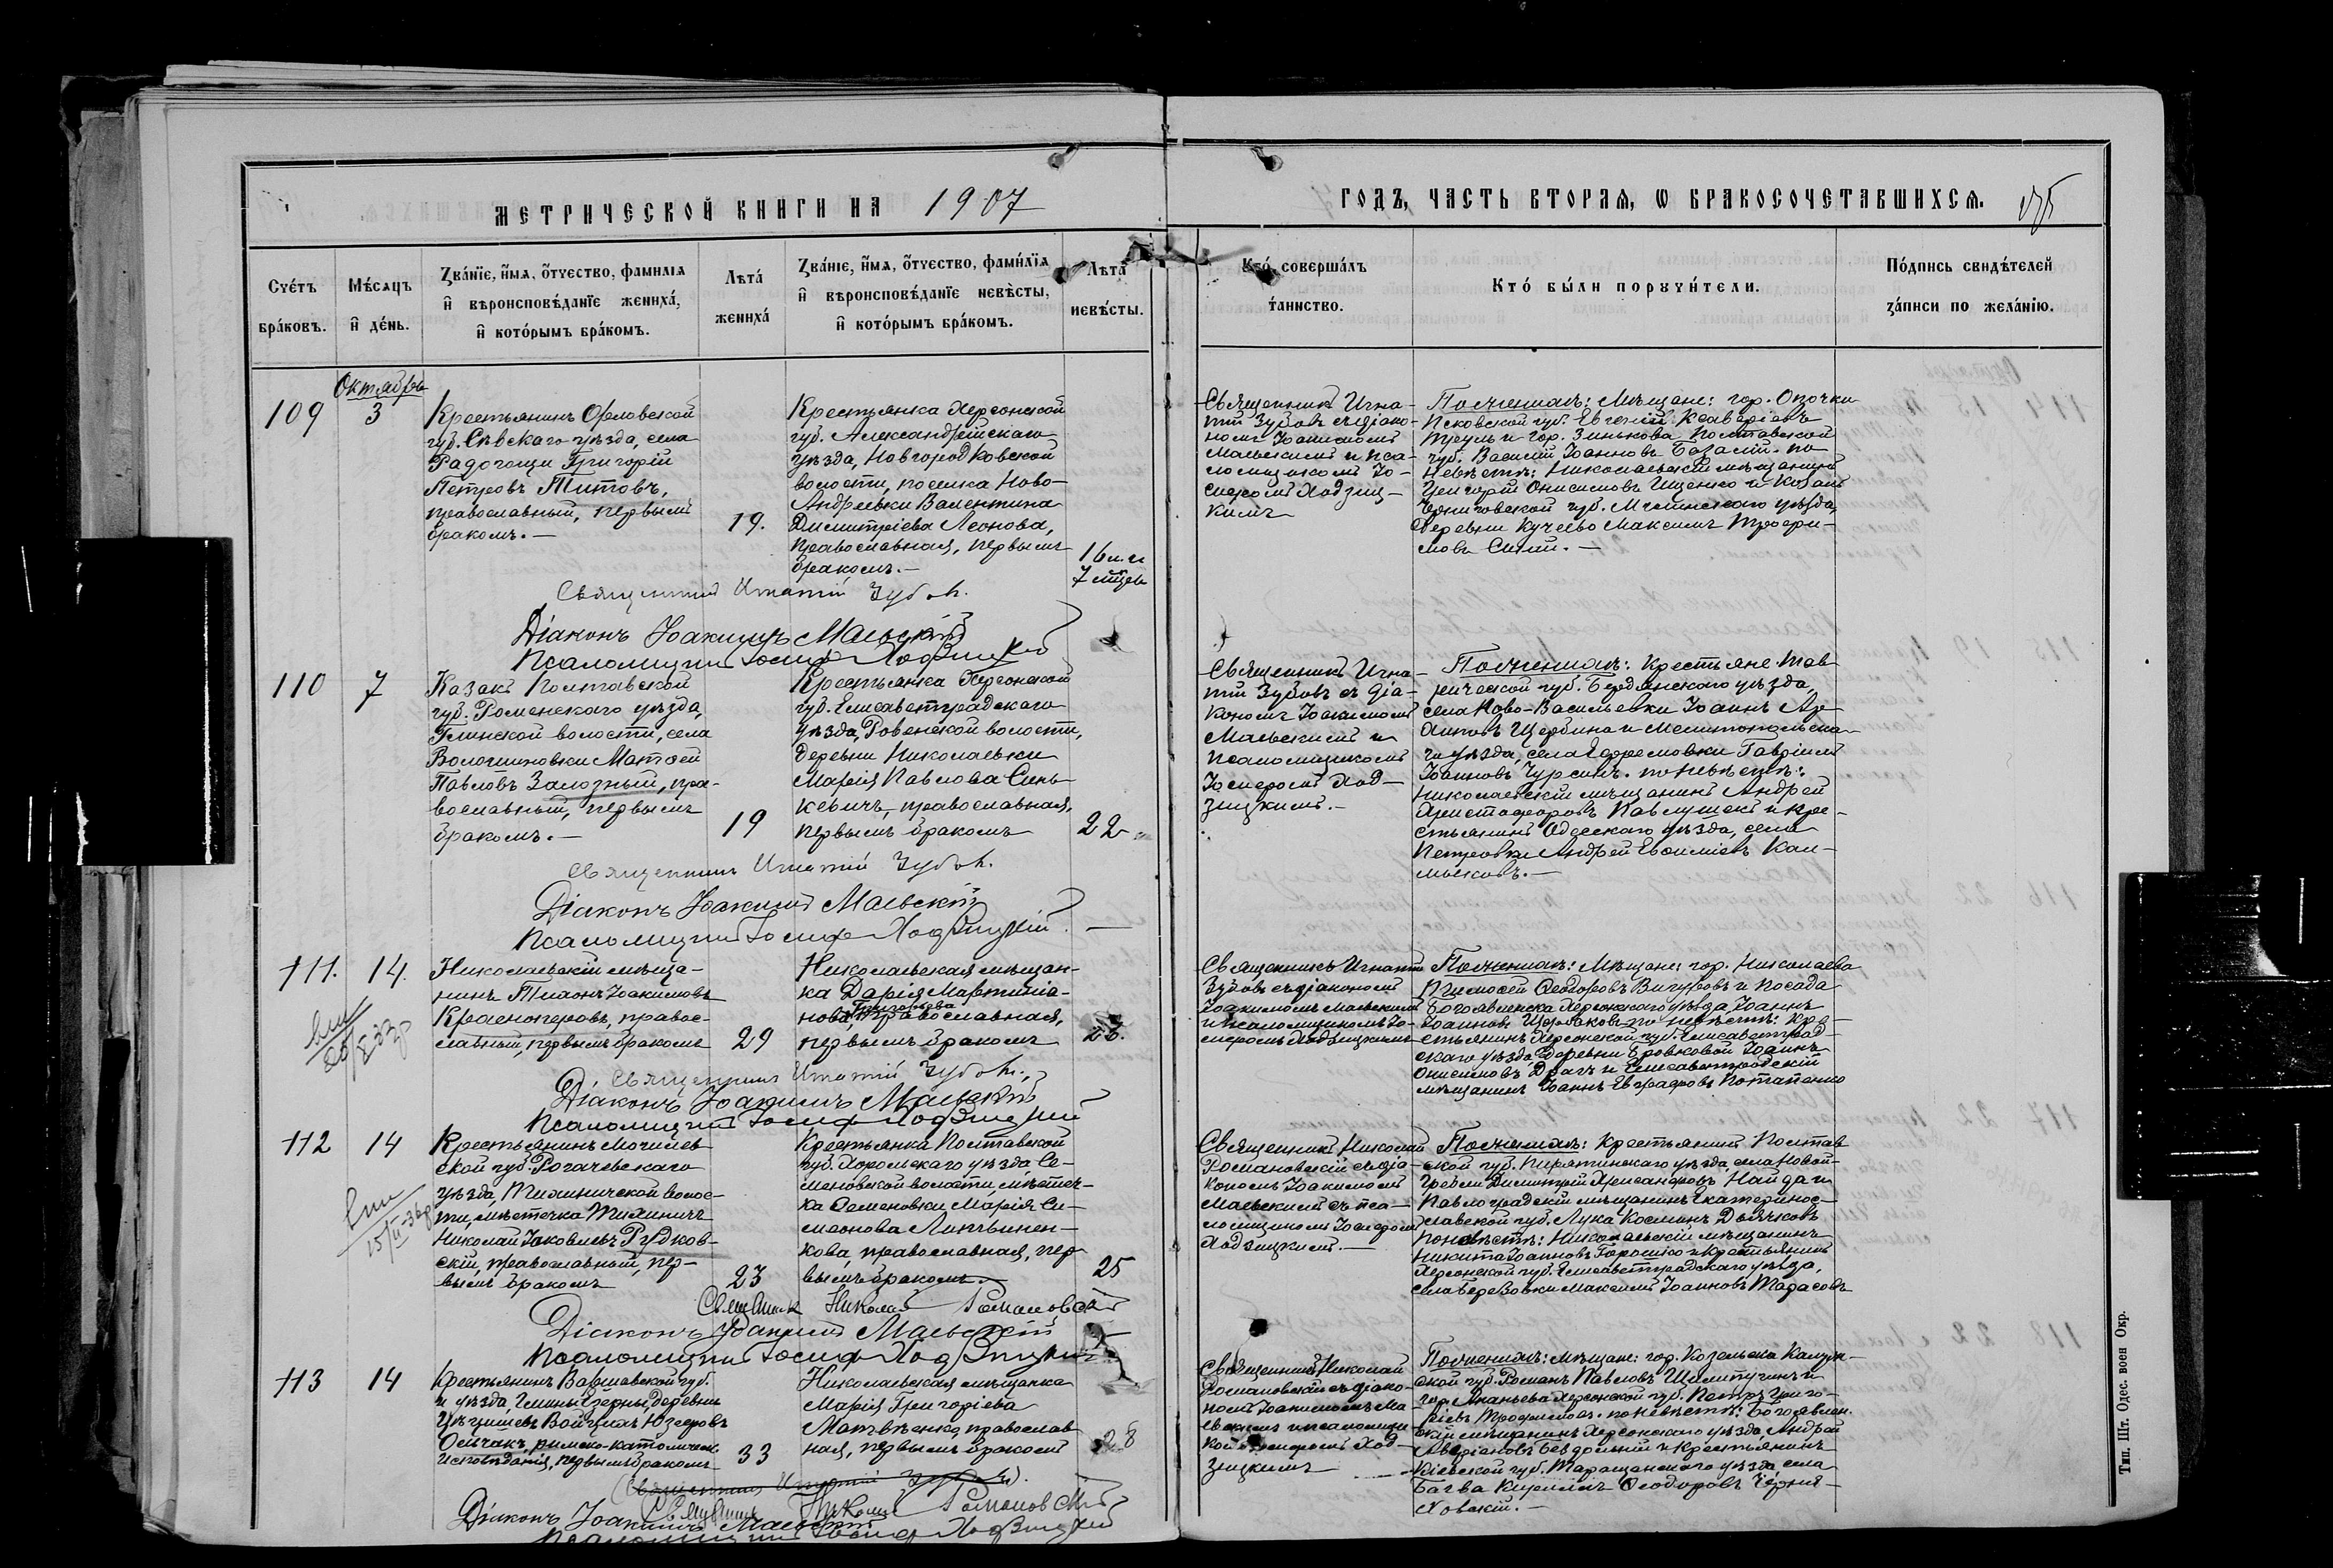 МЕТРИЧЕСКОЙ КНИГИ НА 1907
ГОДЪ, ЧАСТЬ ВТОРАЯ, Ѡ БРАКОСОЧЕТАВШИХСЯ.
Счетъ браковъ.
Мѣсяцъ и день.
Званіе, имя, отчество, фамилія
и вѣроисповѣданіе жениха,
и которымъ бракомъ.
Лѣта
жениха
Званіе, имя, отчество, фамилія
и вѣроисповѣданіе невѣсты,
и которымъ бракомъ.
Лѣта
невѣсты.
Кто совершалъ
таинство.
Кто были поручители.
Подпись свидѣтелей
записи по желанію.
Октябрь
109
3
Крестьянинъ Орловской
губ. Сѣвскаго уѣзда, села
Радогощи Григорій
Петровъ Титовъ,
православный, первымъ
бракомъ.—
19.
Крестьянка Херсонской
губ. Александрійскаго
уѣзда, Новгородковской
волости, поселка Ново-
Андреевки Валентина
Димитріева Леонова,
православная, первымъ
бракомъ.—
16 л. и
7 мѣс.
Священникъ Игна-
тій Зубовъ съ діако-
номъ Іоакимомъ
Маевскимъ и пса-
ломщикомъ Іо-
сифомъ Ходзиц-
кимъ
По женихѣ: Мѣщане: гор. Опочки
Псковской губ. Евгеній Ксаверіевъ
и гор. Зинькова Полтавской
губ. Василій Іоанновъ Базалій. по
невѣстѣ: Николаевскій мѣщанинъ
Григорій Онисимовъ Ищенко и Козакъ
Черниговской губ. Мглинскаго уѣзда,
деревни Кучеево Максимъ Трофи-
мовъ
Священникъ Игнатій Зубовъ.
Діаконъ Іоакимъ Маевскій
Псаломщикъ Іосифъ Ходзицкій
110
7
Казакъ Полтавской
губ. Роменскаго уѣзда,
Глинской волости, села
Волошиновки Матѳей
Павловъ Залозный, пра-
вославный, первымъ
бракомъ.—
19
Крестьянка Херсонской
губ. Елисаветградскаго
уѣзда, Ровенской волости,
деревни Николаевки
Марія Павлова Синь-
кевичъ, православная,
первымъ бракомъ
22
Священникъ Игна-
тій Зубовъ съ діа-
кономъ Іоакимомъ
Маевскимъ и
псаломщикомъ
Іосифомъ Ход-
зицкимъ.—
По женихѣ: Крестьяне Тав-
рической губ. Бердянскаго уѣзда,
села Ново-Васильевки Іоаннъ
Щербина и Мелитопольска-
го уѣзда, села Ефремовки Гавріилъ
Іоанновъ Чурсинъ. по невѣстѣ:
Николаевскій мѣщанинъ Андрей
Христофоровъ Павлушекъ и кре-
стьянинъ Одесскаго уѣзда, села
Петровки Андрей Евѳиміевъ Кал-
мыковъ.—
Священникъ Игнатій Зубовъ.
Діаконъ Іоакимъ Маевскій
Псаломщикъ Іосифъ Ходзицкій.
111.
14.
Николаевскій мѣща-
нинъ Тихонъ Іоакимовъ
Красноперовъ, правос-
лавный, первымъ бракомъ
29
Николаевская мѣщан-
ка Дарія Мартиніа-
нова, православная,
первымъ бракомъ
23.
Священникъ Игнатій
Зубовъ съ діакономъ
Іоакимомъ Маевскимъ
и псаломщикомъ Іо-
сифомъ Ходзицкимъ
По женихѣ: Мѣщане: гор. Николаева
Тимоѳей Ѳеодоровъ Вигуровъ и посада
Богоявленска Херсонскаго уѣзда, Іоаннъ
Іоанновъ Щербаковъ по невѣстѣ: кре-
стьянинъ Херсонской губ. Елисаветград-
скаго уѣзда деревни Бровковой Іоаннъ
Онисимовъ Драгъ и Елисаветградскій
мѣщанинъ Іоаннъ Евграфовъ Потапенко
Священникъ Игнатій Зубовъ.
Діаконъ Іоакимъ Маевскій
Псаломщикъ Іосифъ Ходзицкій
112
14
Крестьянинъ Могилев-
ской губ. Рогачевскаго
уѣзда, Тихиничской волос-
ти, мѣстечка Тихиничъ
Николай Іаковлевъ Рудков-
скій, православный, пер-
вымъ бракомъ
23
Крестьянка Полтавской
губ. Хорольскаго уѣзда, Се-
меновской волости, мѣстеч-
ка Семеновки Марія Си-
меонова Литвинен-
кова, православная, пер-
вымъ бракомъ.—
25
Священникъ Николай
Романовскій съ діа-
кономъ Іоакимомъ
Маевскимъ съ пса-
ломщикомъ Іосифомъ
Ходзицкимъ.—
По женихѣ: Крестьянинъ Полтав-
ской губ. Пирятинскаго уѣзда, села Новой-
Гребли Димитрій Александровъ Найда и
Павлоградскій мѣщанинъ Екатеринос-
лавской губ. Лука Косминъ Дьячковъ
по невѣстѣ: Николаевскій мѣщанинъ
Никита Іоанновъ Горошко и Крестьянинъ
Херсонской губ. Елисаветградскаго уѣзда,
села Березовки Максимъ Іоанновъ Тарасовъ
Священникъ Николай Романовскій
Діаконъ Іоакимъ Маевскій
Псаломщикъ Іосифъ Ходзицкій
113
14
Крестьянинъ Варшавской губ.
и уѣзда, Гмины деревни
Войцехъ Юзефовъ
Осичакъ, римско-католическ.
исповѣданія, первымъ бракомъ
33
Николаевская мѣщанка
Марія Григоріева
Матвѣенко, православ-
ная, первымъ бракомъ
28
Священникъ Николай
Романовскій съ діако-
номъ Іоакимомъ Ма-
евскимъ и псаломщи-
комъ Іосифомъ Ход-
зицкимъ
По женихѣ: Мѣщане: гор. Козельска Калуж-
ской губ. Романъ Павловъ и
гор. Ананьева Херсонской губ. Петръ Григо-
ріевъ Трофимовъ. по невѣстѣ: Богоявлен-
скій мѣщанинъ Херсонскаго уѣзда, Андрей
Аверіановъ и Крестьянинъ
Кіевской губ. Таращанскаго уѣзда села
Багва Кириллъ Ѳеодоровъ Черня-
ховскій.—
Священникъ Николай Романовскій
Діаконъ Іоакимъ Маевскій
Псаломщикъ Іосифъ Ходзицкій
Тип. Шт. Одес. воен Окр.